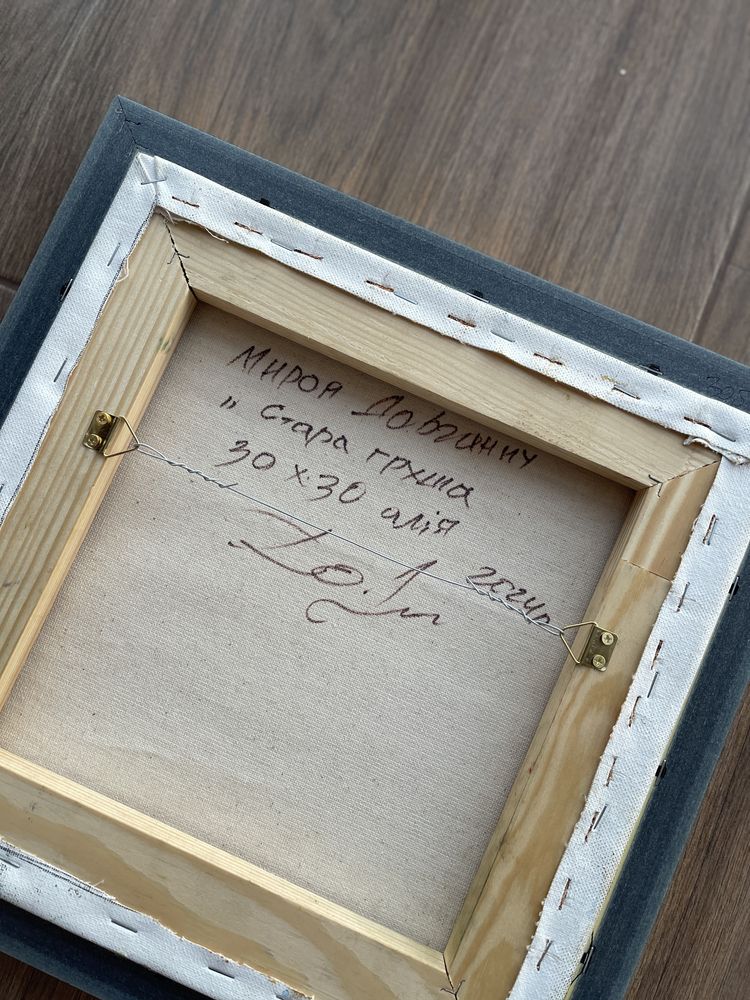 Мирон Довганич
" Стара груша
30 х 30 олія
2024р